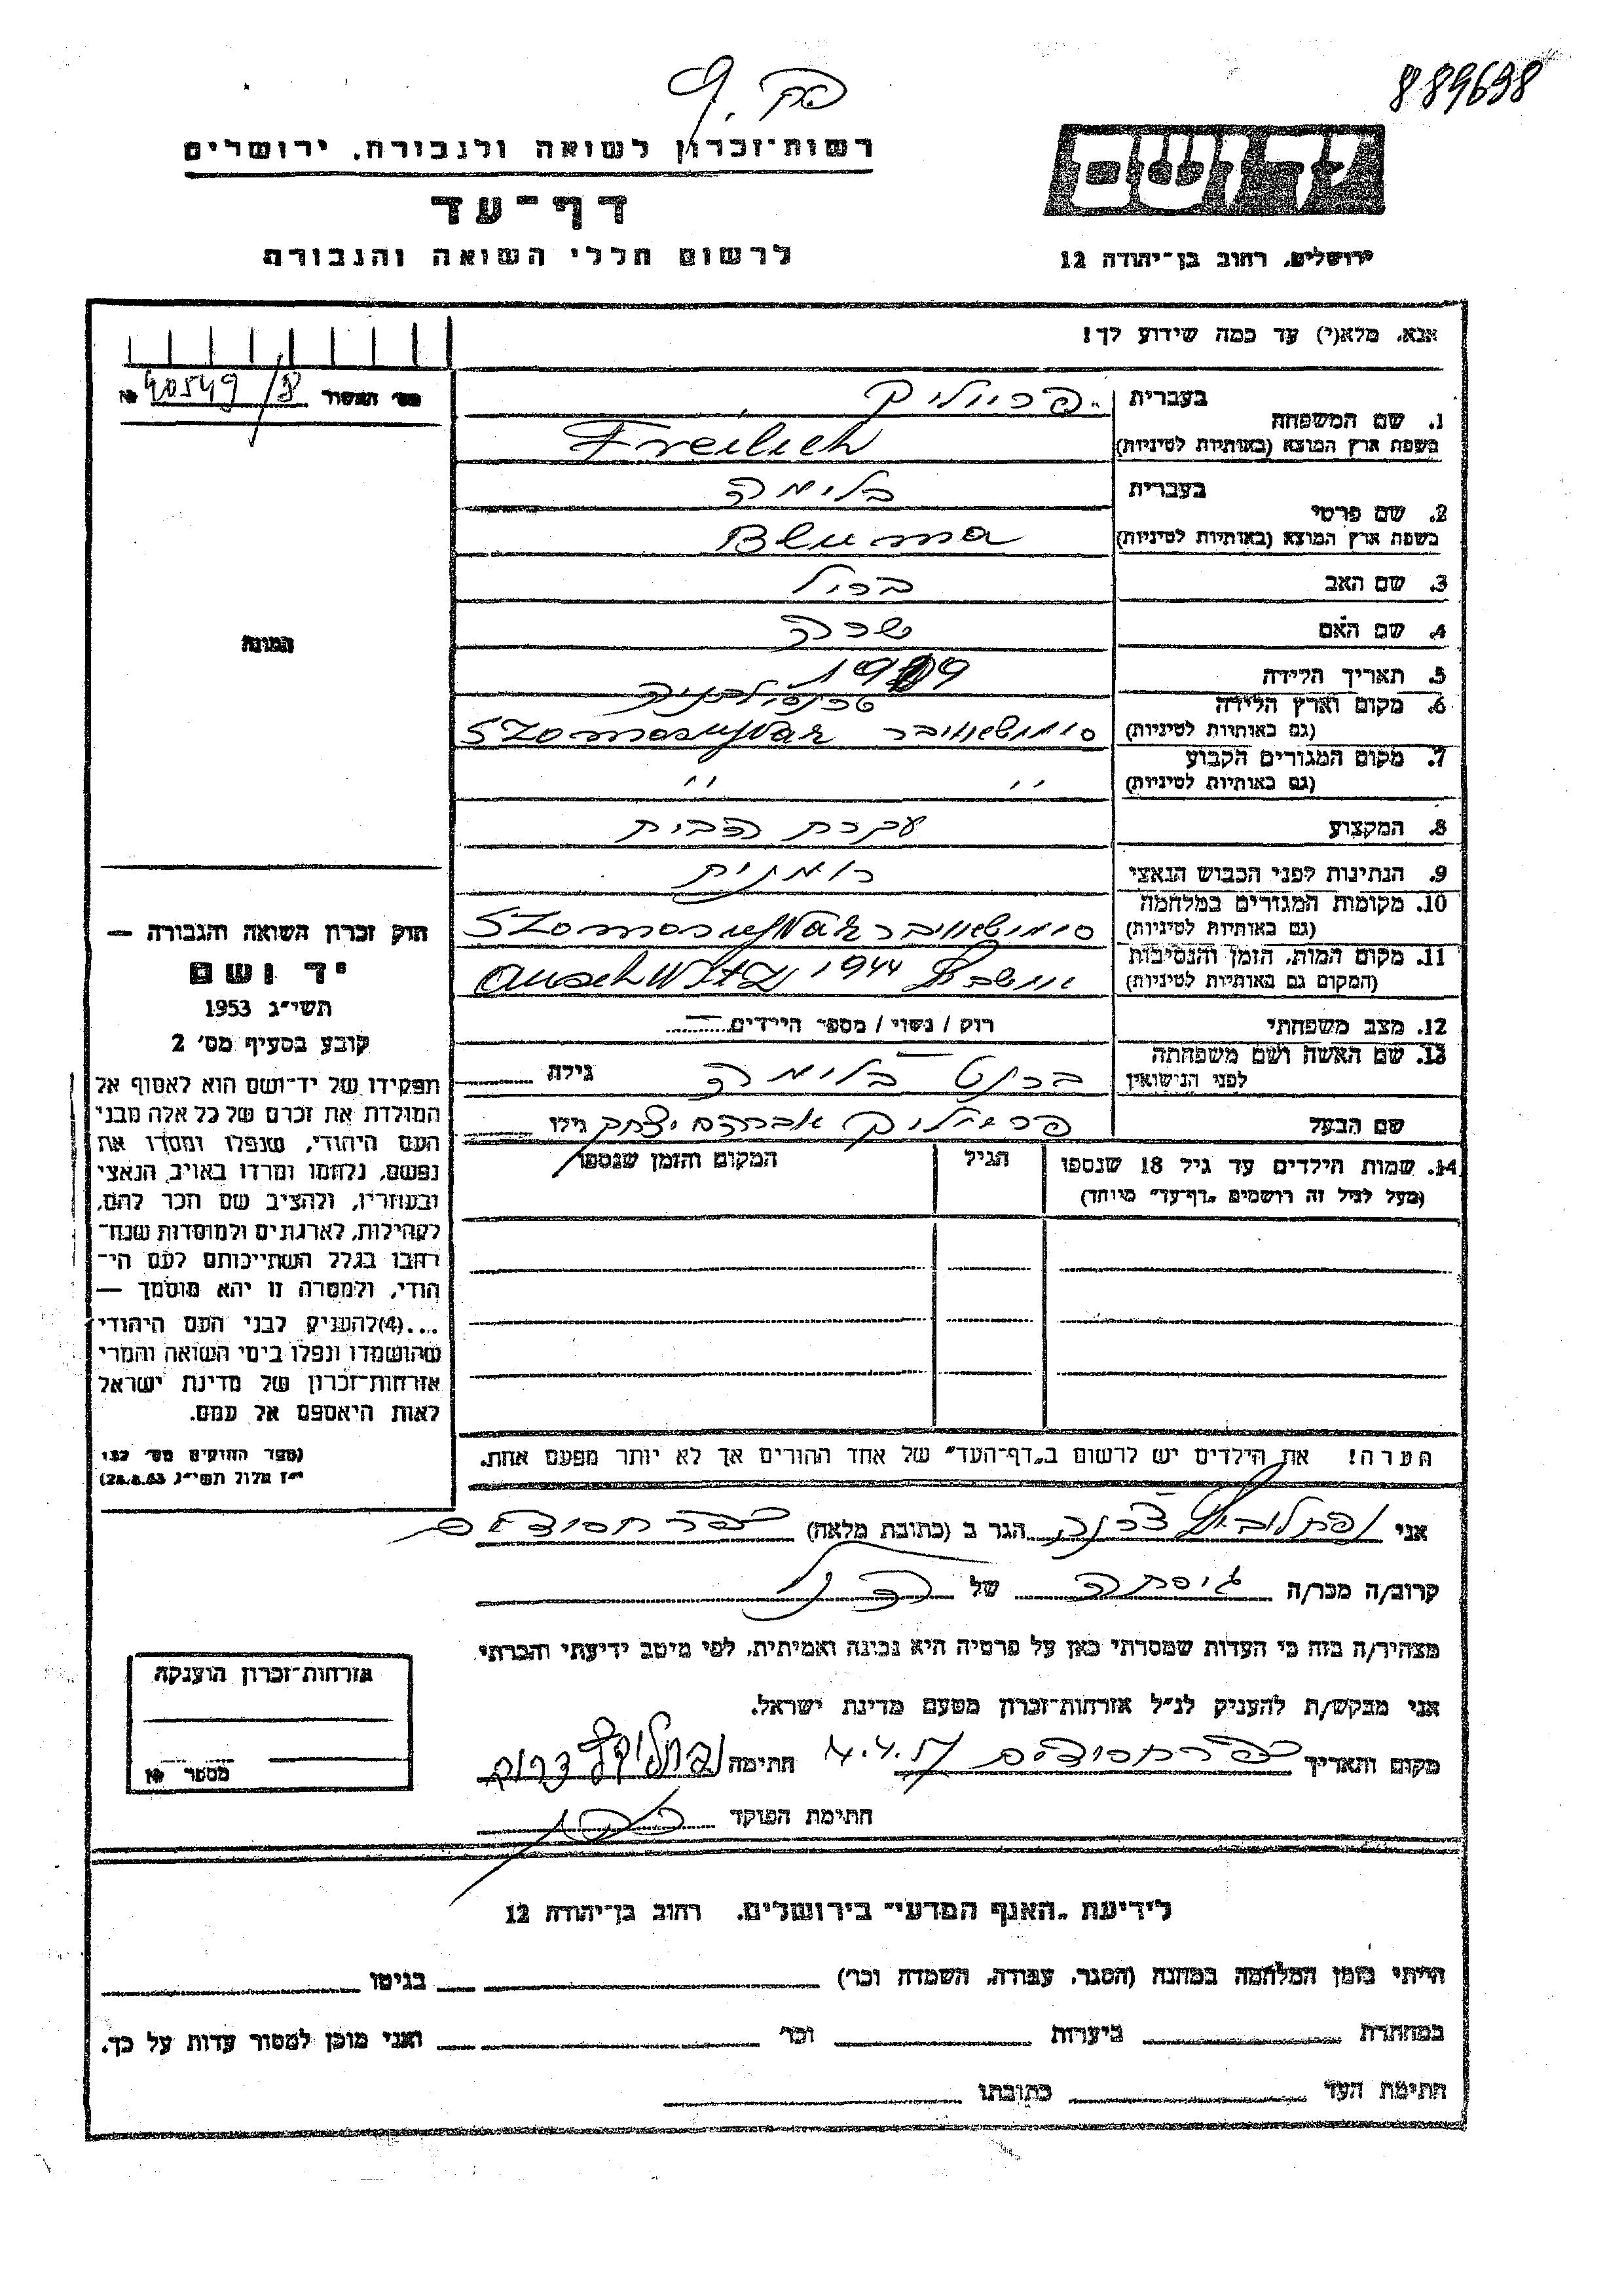 889638
רשות-זכרון לשואה ולגבורה, ירושלים
יד ושם
דף-עד
לרשום חללי השואה והגבורה
ירושלים, רחוב בן-יהודה 12
אנא, מלא(י) עד כמה שידוע לך!
מס' המשור 40549/8 №
1. שם המשפחה
בעברית פריליק
בשפת ארץ המוצא (באותיות לטיניות) Freilich
2. שם פרטי
בעברית בלימה
בשפת ארץ המוצא (באותיות לטיניות) Bluma
3. שם האב
4. שם האם שרה
5. תאריך הלידה
6. מקום וארץ הלידה טרנסילבניה
(גם באותיות לטיניות) סימושאויבר Szomosujvar
7. מקום המגורים הקבוע
(גם באותיות לטיניות) " "
8. המקצוע עקרת הבית
9. הנתינות לפני הכבוש הנאצי רומנית
10. מקומות המגורים במלחמה
(גם באותיות לטיניות) סימושאויבר Szomosujvar
11. מקום המות, הזמן והנסיבות
(המקום גם באותיות לטיניות) Auschwitz 1944
12. מצב משפחתי רוק / נשוי / מספר הילדים
13. שם האשה ושם משפחתה
לפני הנישואין בלימה גילה
שם הבעל פריליק אברהם יצחק גילו
14. שמות הילדים עד גיל 18 שנספו הגיל המקום והזמן שנספו
(מעל לגיל זה רושמים "דף-עד" מיוחד)
הערה! את הילדים יש לרשום ב"דף-העד" של אחד ההורים אך לא יותר מפעם אחת.
התמונה
חוק זכרון השואה והגבורה —
יד ושם
תשי"ג 1953
קובע בסעיף מס' 2
תפקידו של יד-ושם הוא לאסוף אל
המולדת את זכרם של כל אלה מבני
העם היהודי, שנפלו ומסרו את
נפשם, נלחמו ומרדו באויב הנאצי
ובעוזריו, ולהציב שם וזכר להם,
לקהילות, לארגונים ולמוסדות שנח-
רבו בגלל השתייכותם לעם הי-
הודי, ולמטרה זו יהא מוסמך —
...(4)להעניק לבני העם היהודי
שהושמדו ונפלו בימי השואה והמרי
אזרחות-זכרון של מדינת ישראל
לאות היאספם אל עמם.
(ספר החוקים מס' 132
י"ז אלול תשי"ג 28.8.53)
אני הגר ב (כתובת מלאה) כפר חסידים
קרוב/ה מכר/ה גיסתה של הנ"ל
מצהיר/ה בזה כי העדות שמסרתי כאן על פרטיה היא נכונה ואמיתית, לפי מיטב ידיעתי והכרתי
אני מבקש/ת להעניק לנ"ל אזרחות-זכרון מטעם מדינת ישראל.
מקום ותאריך כפר חסידים 4.4.57 חתימה
חתימת הפוקד
אזרחות-זכרון הוענקה
מספר №
לידיעת "האגף המדעי" בירושלים, רחוב בן-יהודה 12
הייתי בזמן המלחמה במחנה (הסגר, עבודה, השמדה וכו') בגיטו
במחתרת ביערות וכו' ואני מוכן למסור עדות על כך.
חתימת העד כתובתו